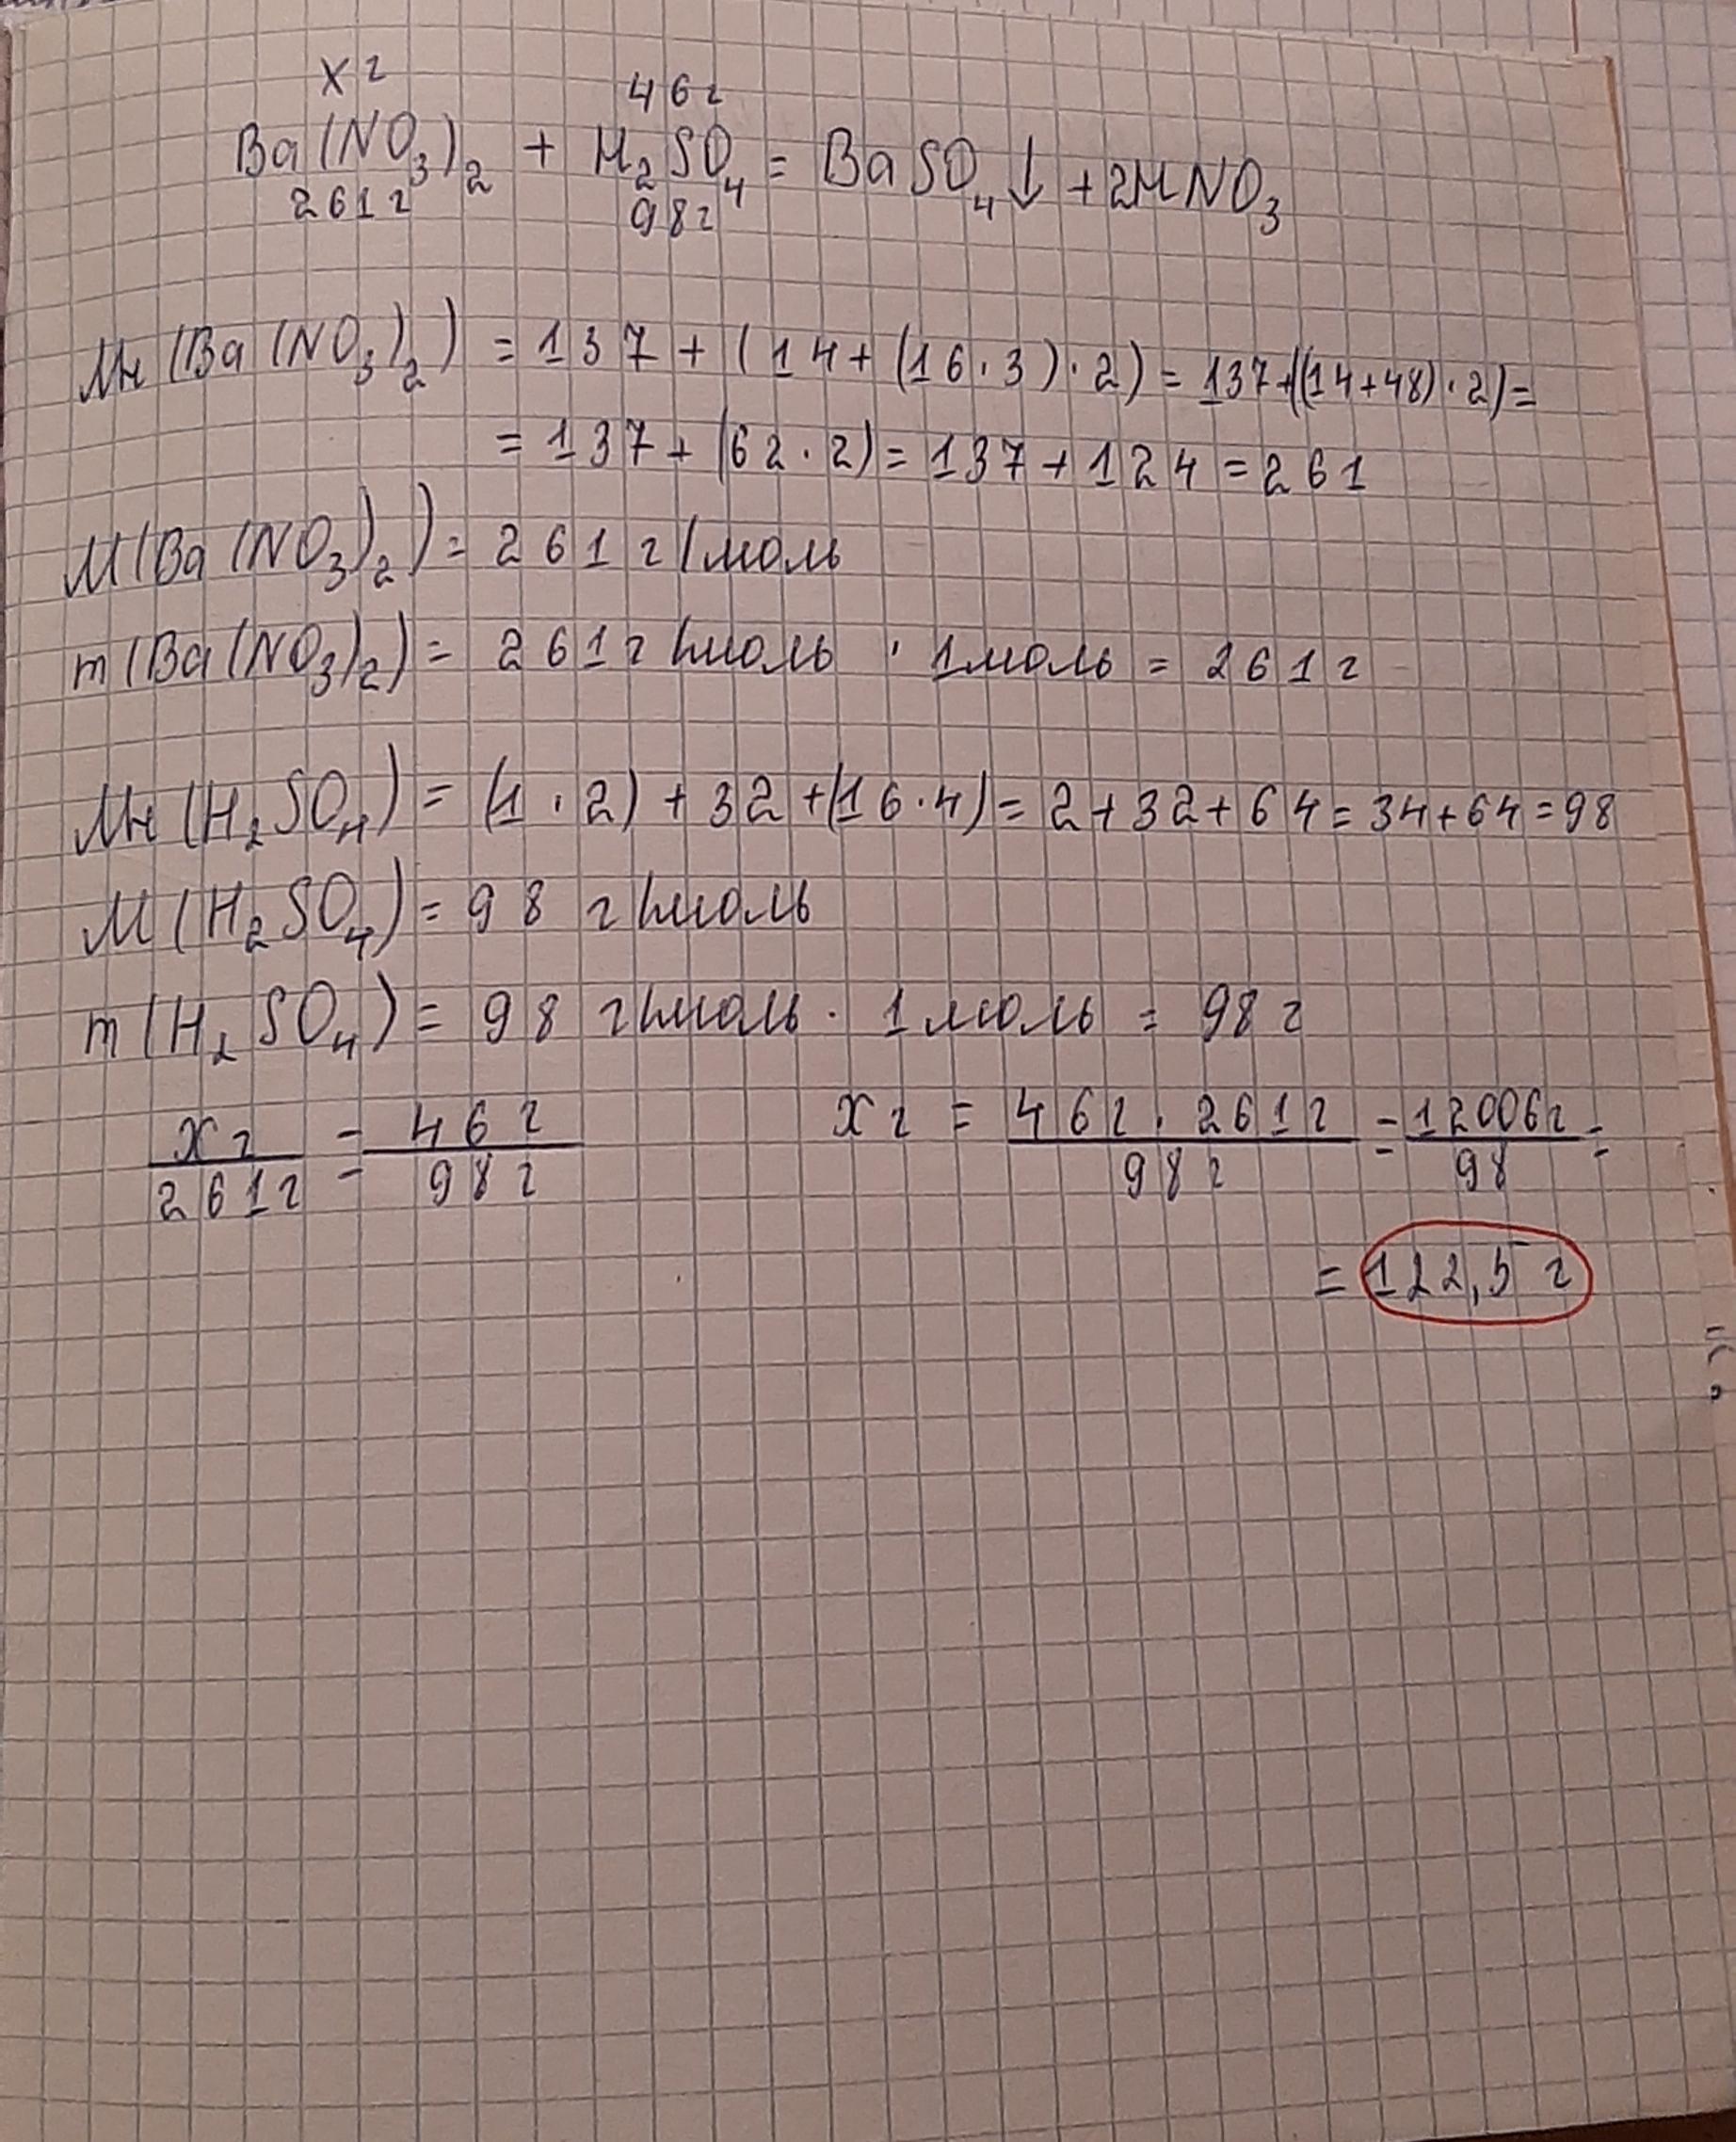 x г
46 г
Ba(NO3)2 + H2SO4 = BaSO4↓ + 2HNO3
261 г
98 г
Mн (Ba(NO3)2) = 137 + (14 + (16·3)·2) = 137+((14+48)·2)=
= 137 + (62·2) = 137 + 124 = 261
M(Ba(NO3)2) = 261 г/моль
m(Ba(NO3)2) = 261 г/моль · 1моль = 261 г
Mн (H2SO4) = (1·2) + 32 + (16·4) = 2+32+64 = 34+64 = 98
M(H2SO4) = 98 г/моль
m(H2SO4) = 98 г/моль · 1 моль = 98 г
x г / 261 г = 46 г / 98 г
x г = 46 г · 261 г / 98 г = 12006 г / 98 =
= 122,5 г